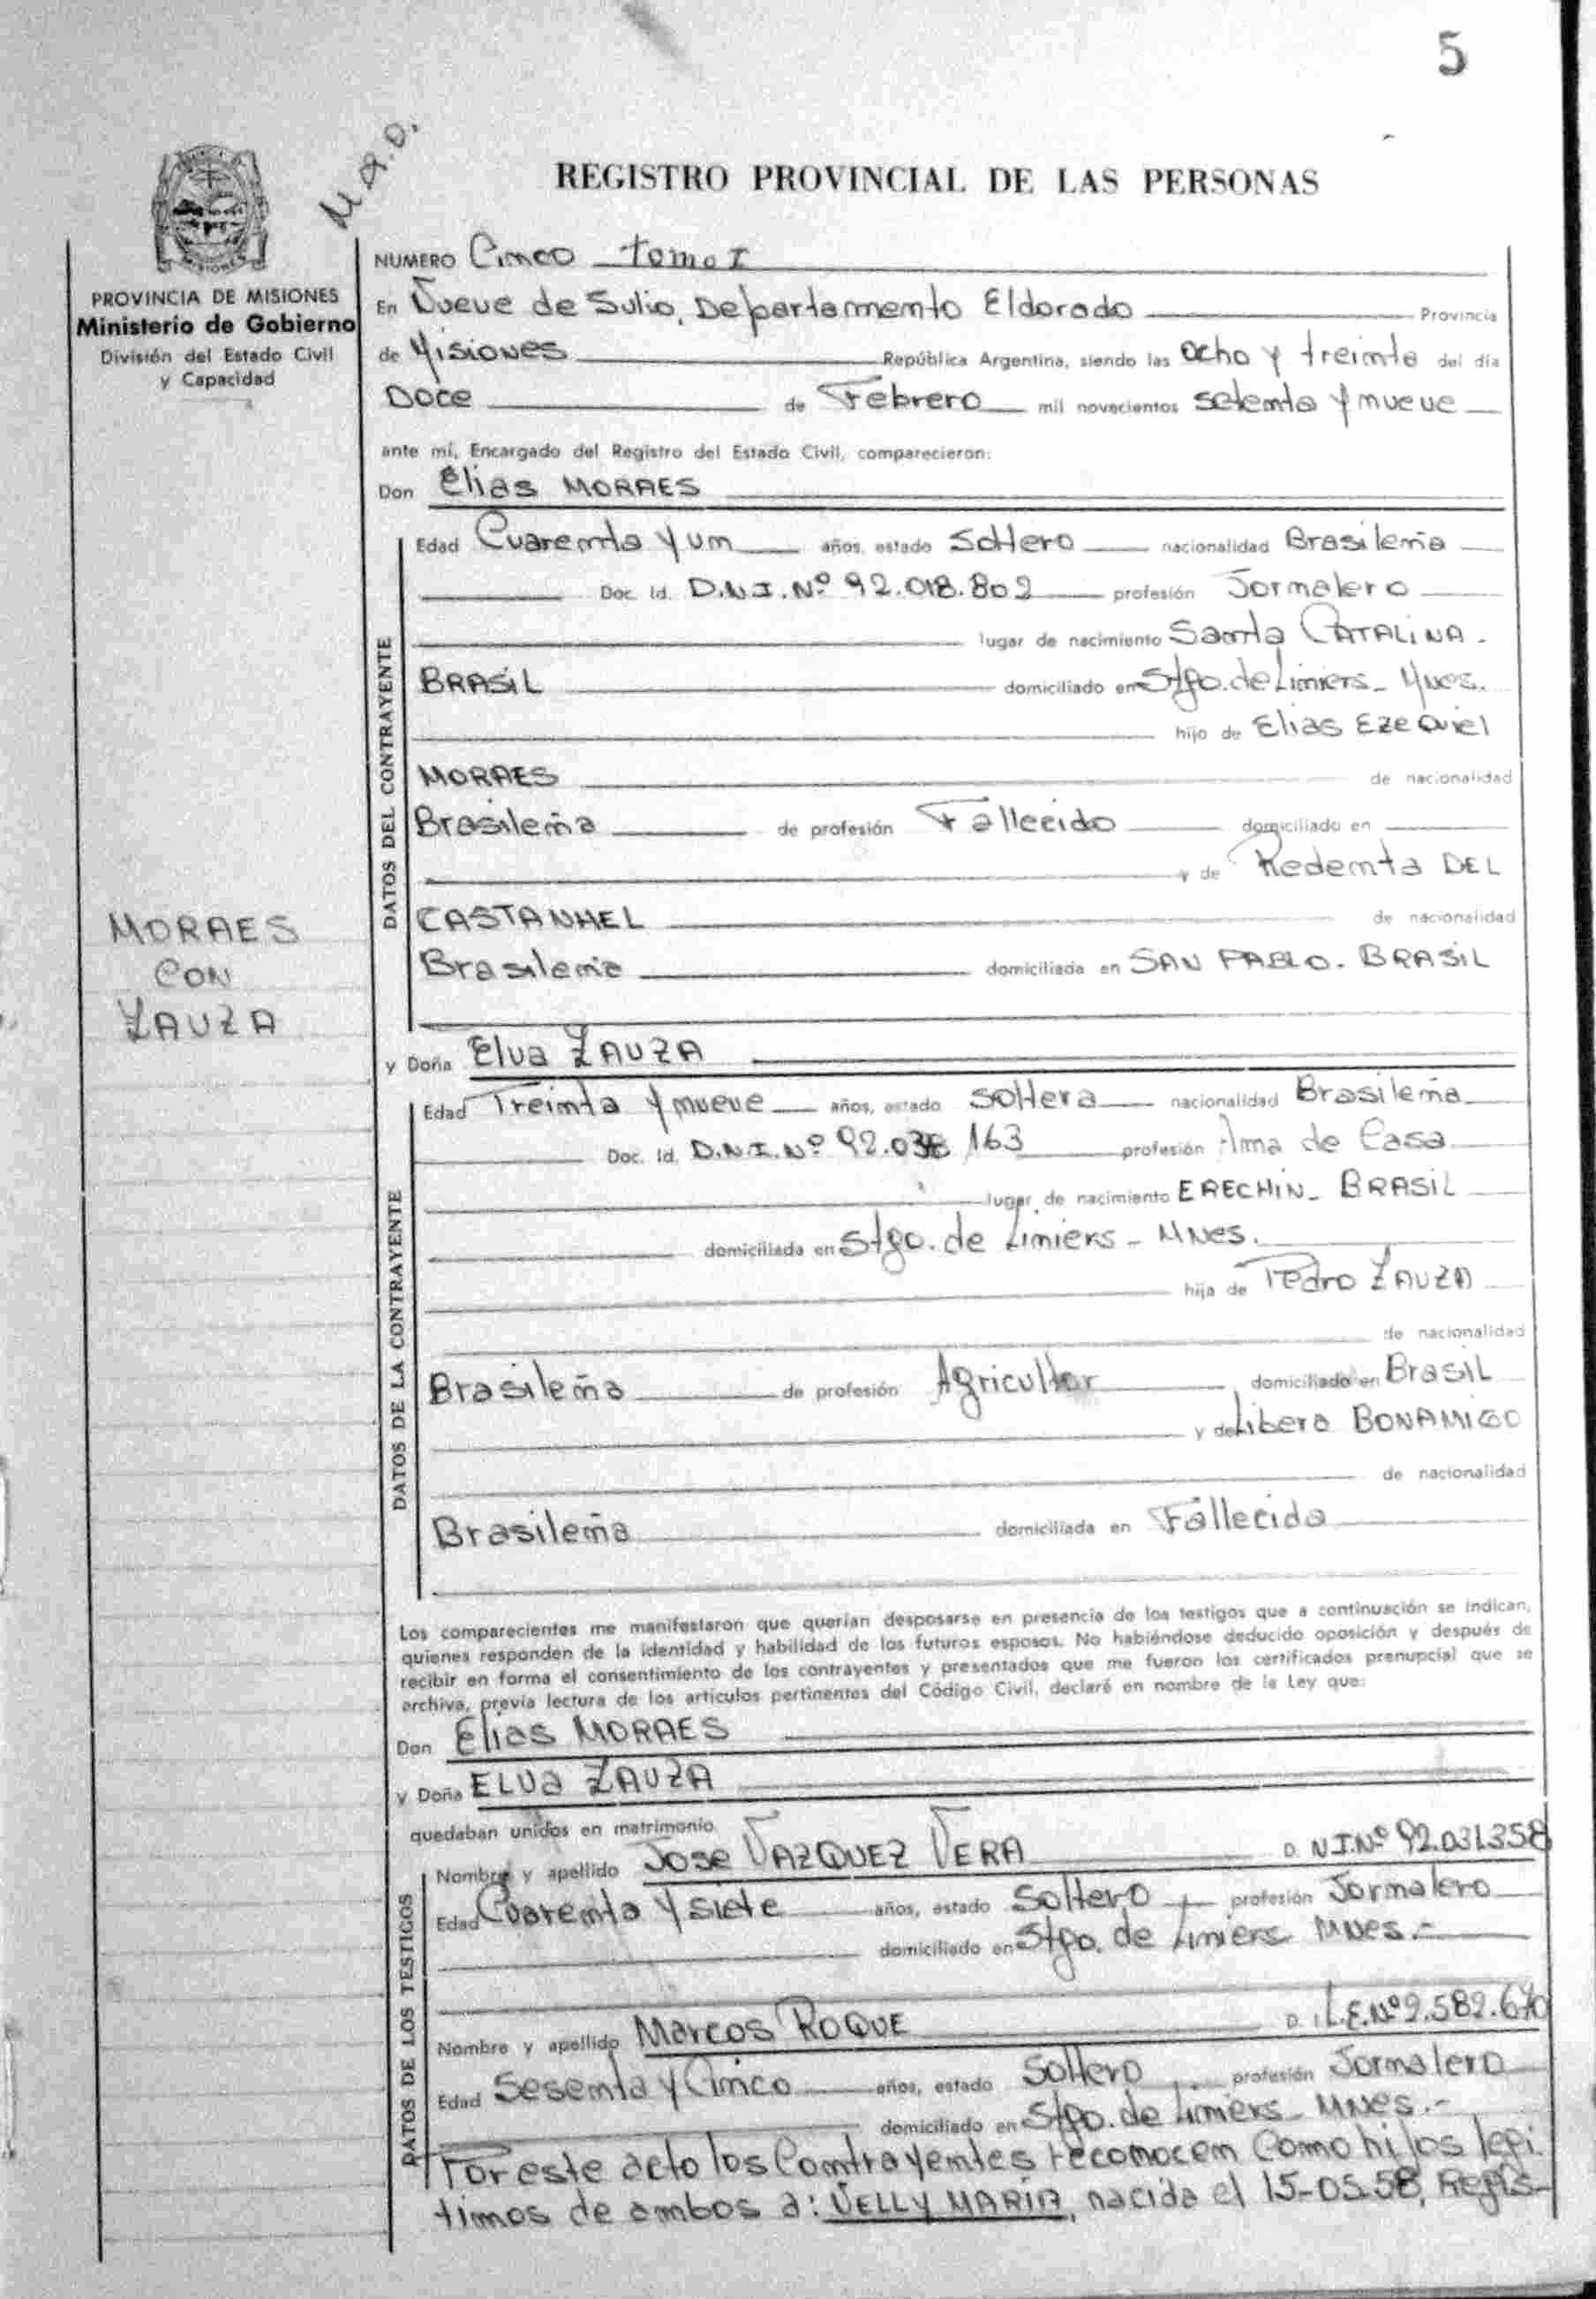 5
M.A.D.
REGISTRO PROVINCIAL DE LAS PERSONAS
PROVINCIA DE MISIONES
Ministerio de Gobierno
División del Estado Civil
y Capacidad
MORAES
CON
ZAUZA
NUMERO Cinco Tomo I
En Nueve de Julio, Departamento Eldorado Provincia
de Misiones República Argentina, siendo las Ocho y treinta del día
Doce de Febrero mil novecientos setenta y nueve
ante mí, Encargado del Registro del Estado Civil, comparecieron:
Don Elias MORAES
DATOS DEL CONTRAYENTE
Edad Cuarenta y un años, estado Soltero nacionalidad Brasileña
Doc. Id. D.N.I. Nº 92.018.802 profesión Jornalero
lugar de nacimiento Santa CATALINA.
BRASIL domiciliado en Stgo. de Liniers - Mnes.
hijo de Elias EZEQuiel
MORAES de nacionalidad
Brasileña de profesión Fallecido domiciliado en
y de Redenta DEL
CASTANHEL de nacionalidad
Brasileña domiciliada en SAN PABLO. BRASIL
y Doña Elva ZAUZA
DATOS DE LA CONTRAYENTE
Edad Treinta y nueve años, estado soltera nacionalidad Brasileña
Doc. Id. D.N.I. Nº 92.038 163 profesión Ama de Casa
lugar de nacimiento ERECHIN - BRASIL
domiciliada en Stgo. de Liniers - MNes.
hija de Pedro ZAUZA
de nacionalidad
Brasileña de profesión Agricultor domiciliado en Brasil
y de Libera BONAMIGO
de nacionalidad
Brasileña domiciliada en Fallecida
Los comparecientes me manifestaron que querían desposarse en presencia de los testigos que a continuación se indican,
quienes responden de la identidad y habilidad de los futuros esposos. No habiéndose deducido oposición y después de
recibir en forma el consentimiento de los contrayentes y presentados que me fueron los certificados prenupcial que se
archiva, previa lectura de los artículos pertinentes del Código Civil, declaré en nombre de la Ley que:
Don Elias MORAES
y Doña ELVA ZAUZA
quedaban unidos en matrimonio.
DATOS DE LOS TESTIGOS
Nombre y apellido Jose VAZQUEZ VERA D. N.I. Nº 92.031.358
Edad Cuarenta y siete años, estado Soltero profesión Jornalero
domiciliado en Stgo. de Liniers Mnes.-
Nombre y apellido Marcos ROQUE D. I. L.E. Nº 2.582.670
Edad Sesenta y Cinco años, estado Soltero profesión Jornalero
domiciliado en Stgo. de Liniers - MNes.-
Por este acto los Contrayentes reconocen como hijos legi-
timos de ambos a: NELLY MARIA, nacida el 15-05-58, Regis-